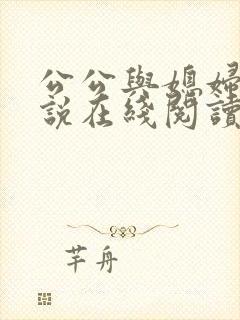 公公與媳婦
說在綫閱讀
芊舟